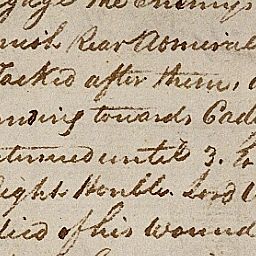 the Enemy's
Rear Admiral
Tacked after them,
towards Cadi
until 3.
ight Honble. Lord
died of his wound